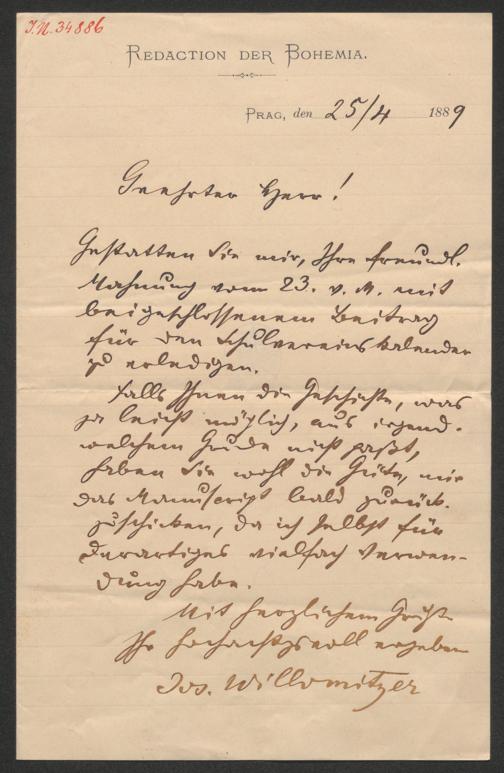 I.N. 34886
REDACTION DER BOHEMIA.
PRAG, den 25/4 1889
Geehrter Herr!
Gestatten Sie mir, Ihre freundl.
Mahnung vom 23. v. M. mit
beigeschlossenem Beitrag
für den Schulvereinskalender
zu erledigen.
Falls Ihnen die Geschichte, was
ja leicht möglich, aus irgend-
welchem Grunde nicht paßt,
haben Sie wohl die Güte, mir
das Manuscript bald zurück-
zuschicken, da ich selbst für
Derartiges vielfach Verwen-
dung habe.
Mit herzlichem Gruße
Ihr hochachtungsvoll ergebener
Jos. Willomitzer